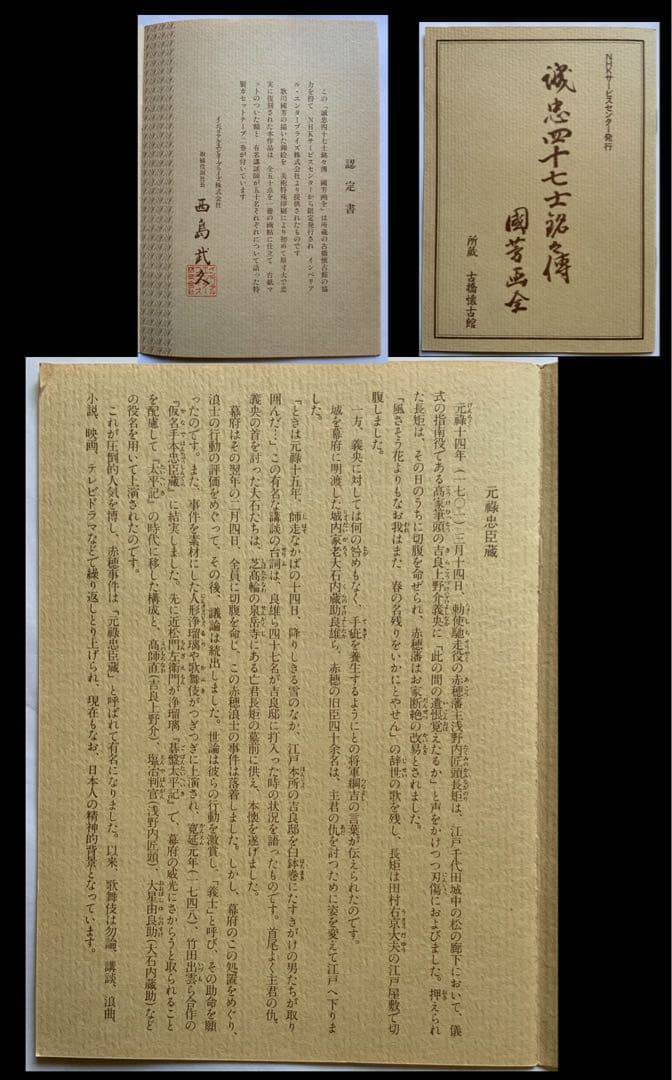 NHKサービスセンター発行
誠忠四十七士銘々傳
國芳画全
所蔵 古橋懐古館
認定書
この「誠忠四十七士銘々傳 國芳画全」は所蔵の古橋懐古館の協
力を得て NHKサービスセンターから限定発行され インペリア
ル・エンタープライズ株式会社より提供されたものです
歌川國芳の描いた錦絵を 美術特殊印刷により初めて原寸大で忠
実に復刻された本作品は 全五十点を一冊の画帖に仕立て 台紙マ
ットのついた額と 有名講談師が五十名それぞれについて語った特
製カセットテープ二巻が付いています
インペリアル・エンタープライズ株式会社
取締役副社長
西島武久
元禄忠臣蔵
元禄十四年(一七〇一)三月十四日、勅使馳走役の赤穂藩主浅野内匠頭長矩は、江戸千代田城中の松の廊下において、儀
式の指南役である高家筆頭の吉良上野介義央に「此の間の遺恨覚えたるか」と声をかけつつ刃傷におよびました。押えられ
た長矩は、その日のうちに切腹を命ぜられ、赤穂藩はお家断絶の改易とされました。
「風さそう花よりもなお我はまた 春の名残りをいかにとやせん」の辞世の歌を残し、長矩は田村右京大夫の江戸屋敷で切
腹しました。
一方、義央に対しては何の咎めもなく、手疵を養生するようにとの将軍綱吉の言葉が伝えられたのです。
城を幕府に明渡した城内家老大石内蔵助良雄ら、赤穂の旧臣四十余名は、主君の仇を討つために姿を変えて江戸へ下りま
した。
「ときは元禄十五年、師走なかばの十四日、降りしきる雪のなか、江戸本所の吉良邸を白鉢巻にたすきがけの男たちが取り
囲んだ…」この有名な講談の台詞は、良雄ら四十七名が吉良邸に打入った時の状況を語ったものです。首尾よく主君の仇、
義央の首を討った大石たちは、芝高輪の泉岳寺にある亡君長矩の墓前に供え、本懐を遂げました。
幕府はその翌年の二月四日、全員に切腹を命じ、この赤穂浪士の事件は落着しました。しかし、幕府のこの処置をめぐり、
浪士の行動の評価をめぐって、その後、議論は続出しました。世論は彼らの行動を激賞し、「義士」と呼び、その助命を願
ったのです。また、事件を素材にした人形浄瑠璃や歌舞伎がつぎつぎに上演され、寛延元年(一七四八)、竹田出雲ら合作の
『仮名手本忠臣蔵』に結実しました。先に近松門左衛門が浄瑠璃『碁盤太平記』で、幕府の威光にさからうと取られること
を配慮して『太平記』の時代に移した構成と、高師直(吉良上野介)、塩冶判官(浅野内匠頭)、大星由良助(大石内蔵助)など
の役名を用いて上演されたのです。
これが圧倒的人気を博し、赤穂事件は『元禄忠臣蔵』と呼ばれて有名になりました。以来、歌舞伎は勿論、講談、浪曲、
小説、映画、テレビドラマなどで繰り返しとり上げられ、現在もなお、日本人の精神的背景となっています。